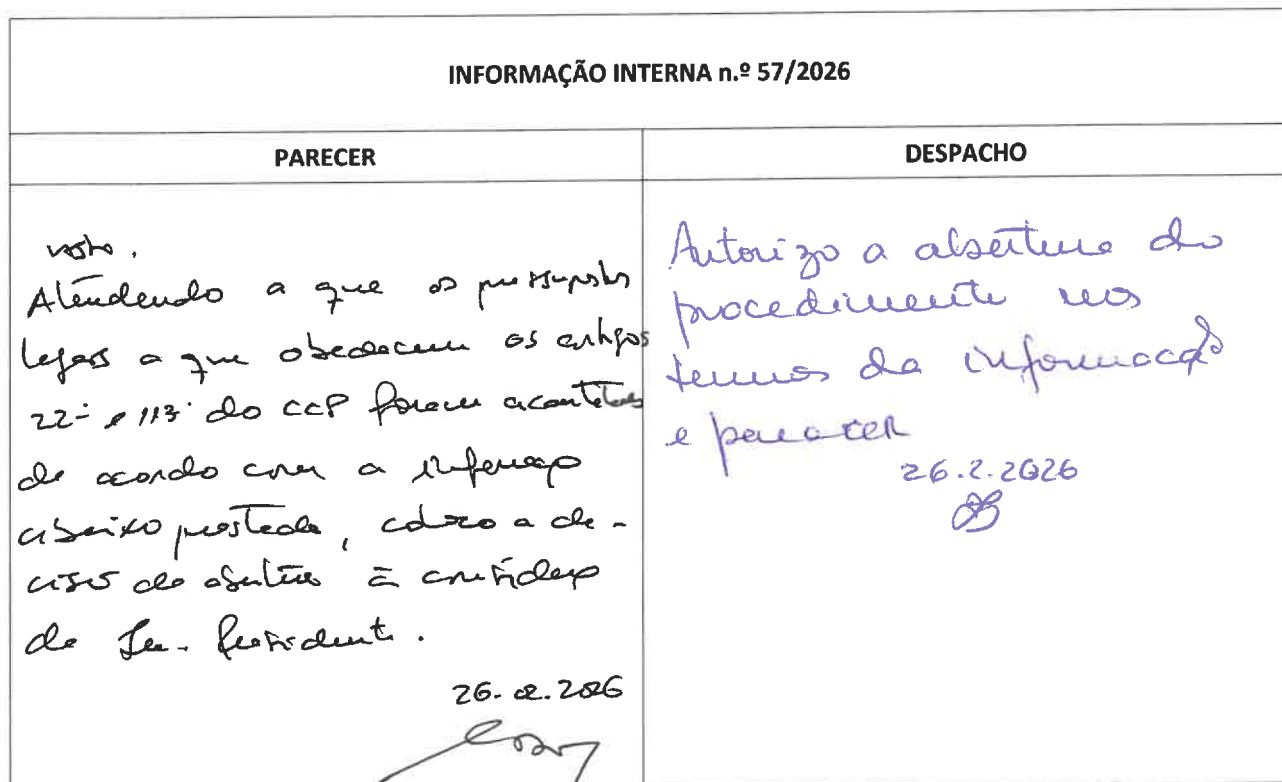 INFORMAÇÃO INTERNA n.º 57/2026
PARECER
DESPACHO
visto.
Atendendo a que os pressupostos
legais a que obedecem os artigos
22º e 113º do CCP foram acautelados
de acordo com a informação
abaixo prestada, coloco a de-
cisão de abertura à consideração
do Sr. Presidente.
26.02.2026
Autorizo a abertura do
procedimento nos
termos da informação
e parecer
26.2.2026